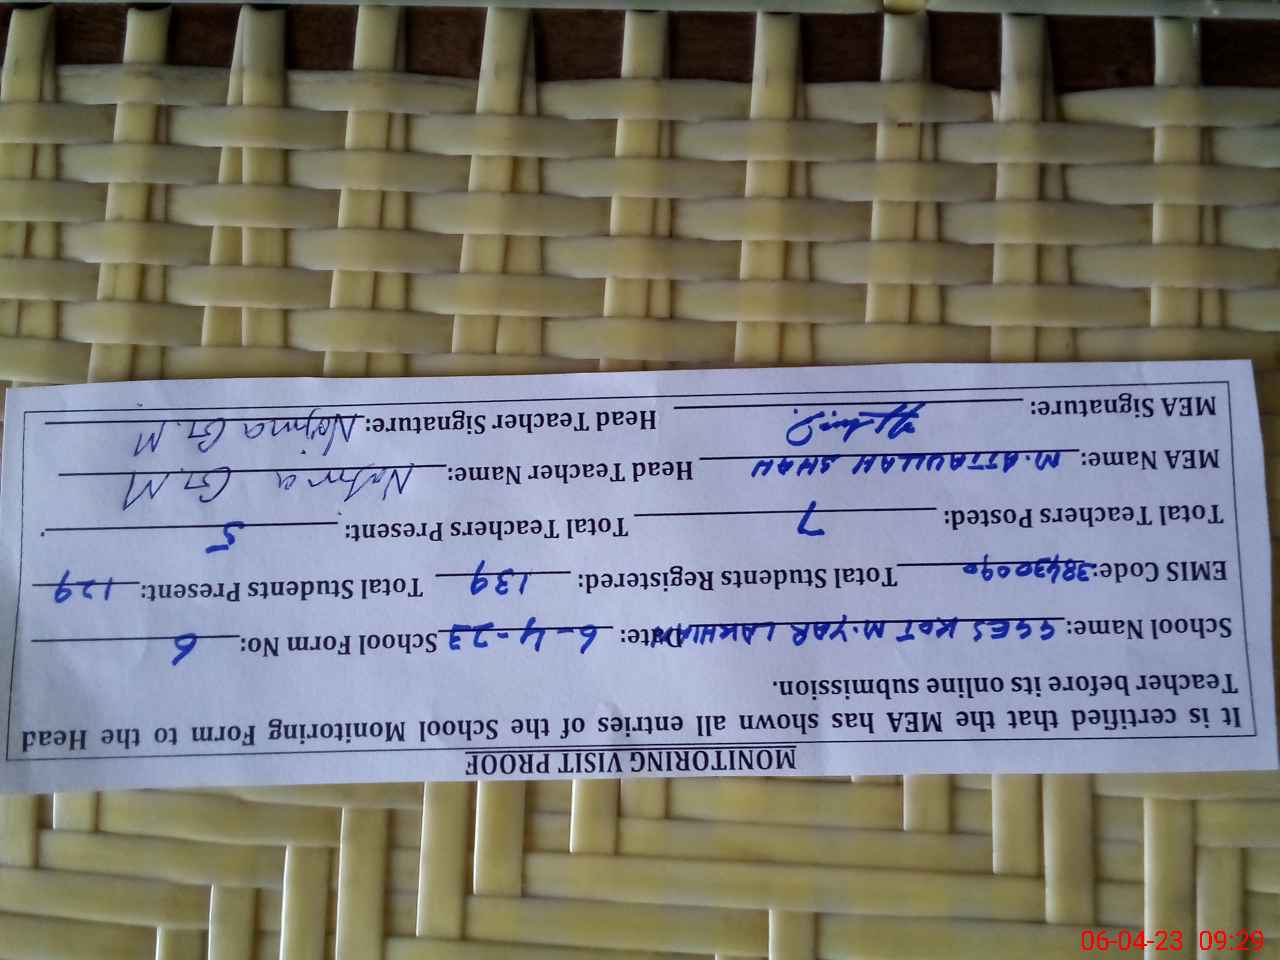 MONITORING VISIT PROOF
It is certified that the MEA has shown all entries of the School Monitoring Form to the Head
Teacher before its online submission.
School Name: GGES KOT M.YAR LAKHIAN Date: 6-4-23 School Form No: 6
EMIS Code: 38430090 Total Students Registered: 139 Total Students Present: 129
Total Teachers Posted: 7 Total Teachers Present: 5
MEA Name: M.ATTAULLAH SHAH Head Teacher Name: G.M
MEA Signature: Head Teacher Signature: Najma G.M
06-04-23 09:29